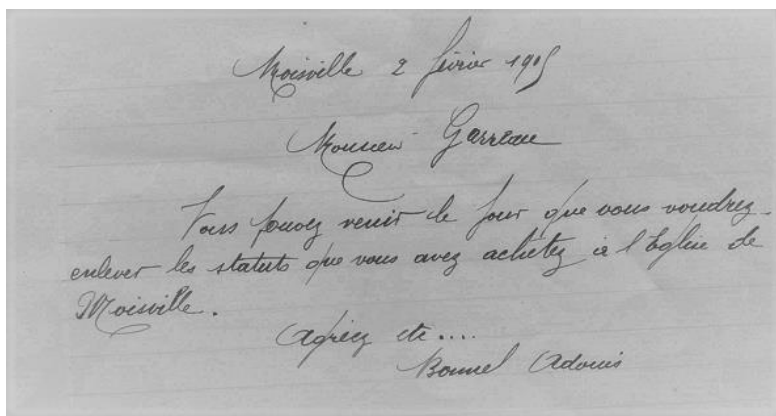 Moisville 2 février 1905
Monsieur Garreau
Vous pouvez venir le jour que vous voudrez
enlever les statuts que vous avez achetez à l'Eglise de
Moisville.
Agréez etc....
Bonnel Adonis